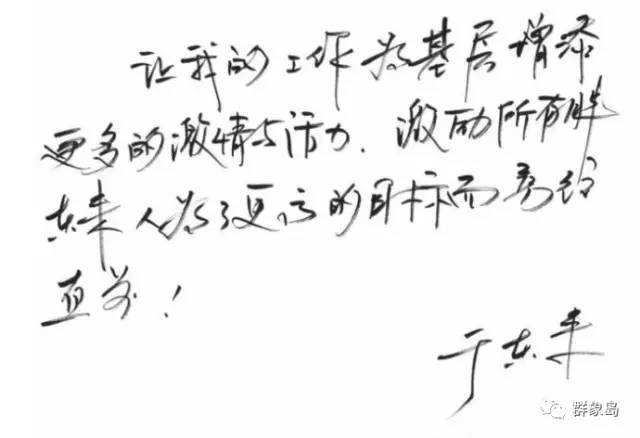 让我的工作为基层增添
更多的激情与活力，激励所有胖
东来人为了更高的目标而勇往
直前！
于东来
群象岛